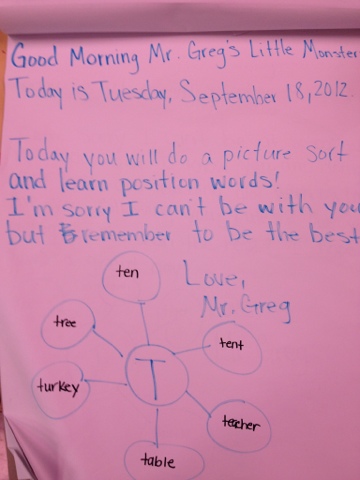 Good Morning Mr. Greg's Little Monster
Today is Tuesday, September 18, 2012.
Today you will do a picture sort
and learn position words!
I'm sorry I can't be with you
but remember to be the best
Love,
Mr. Greg
ten
tree
tent
T
turkey
teacher
table